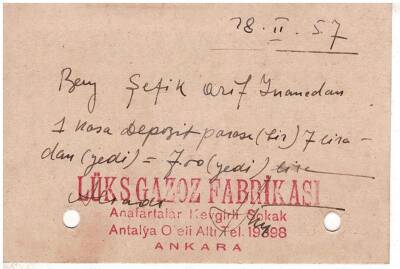 28.II.57
Bay Şefik Arif İnanedan
1 kasa depozit parası (bir) 7 lira-
dan (yedi) = 7.00 (yedi) lira
LÜKS GAZOZ FABRİKASI
Anafartalar Sokak
Antalya Oteli Altı Tel. 19898
ANKARA